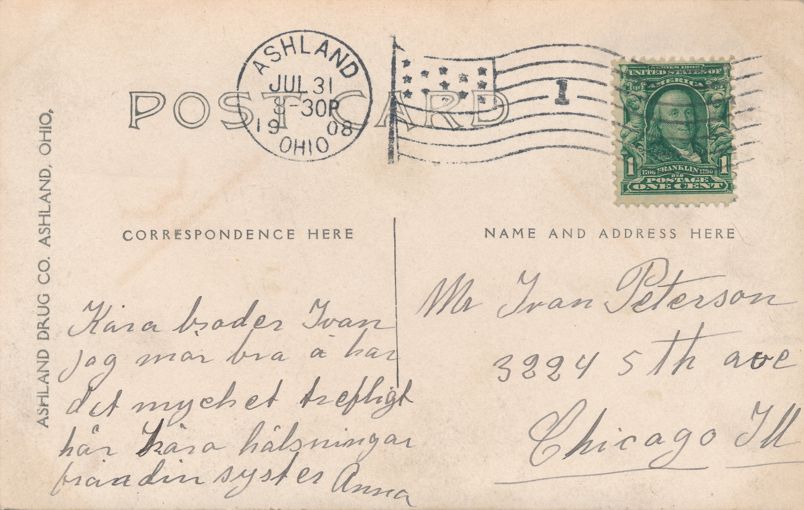 ASHLAND
JUL 31
8-30P
19 08
OHIO
1
POST CARD
UNITED STATES OF
AMERICA
1 1
FRANKLIN
POSTAGE
ONE CENT
ASHLAND DRUG CO. ASHLAND, OHIO.
CORRESPONDENCE HERE
Kära broder Ivan
jag mår bra å har
det mycket trefligt
här Kära hälsningar
från din syster Anna
NAME AND ADDRESS HERE
Mr Ivan Peterson
3224 5th ave
Chicago Ill